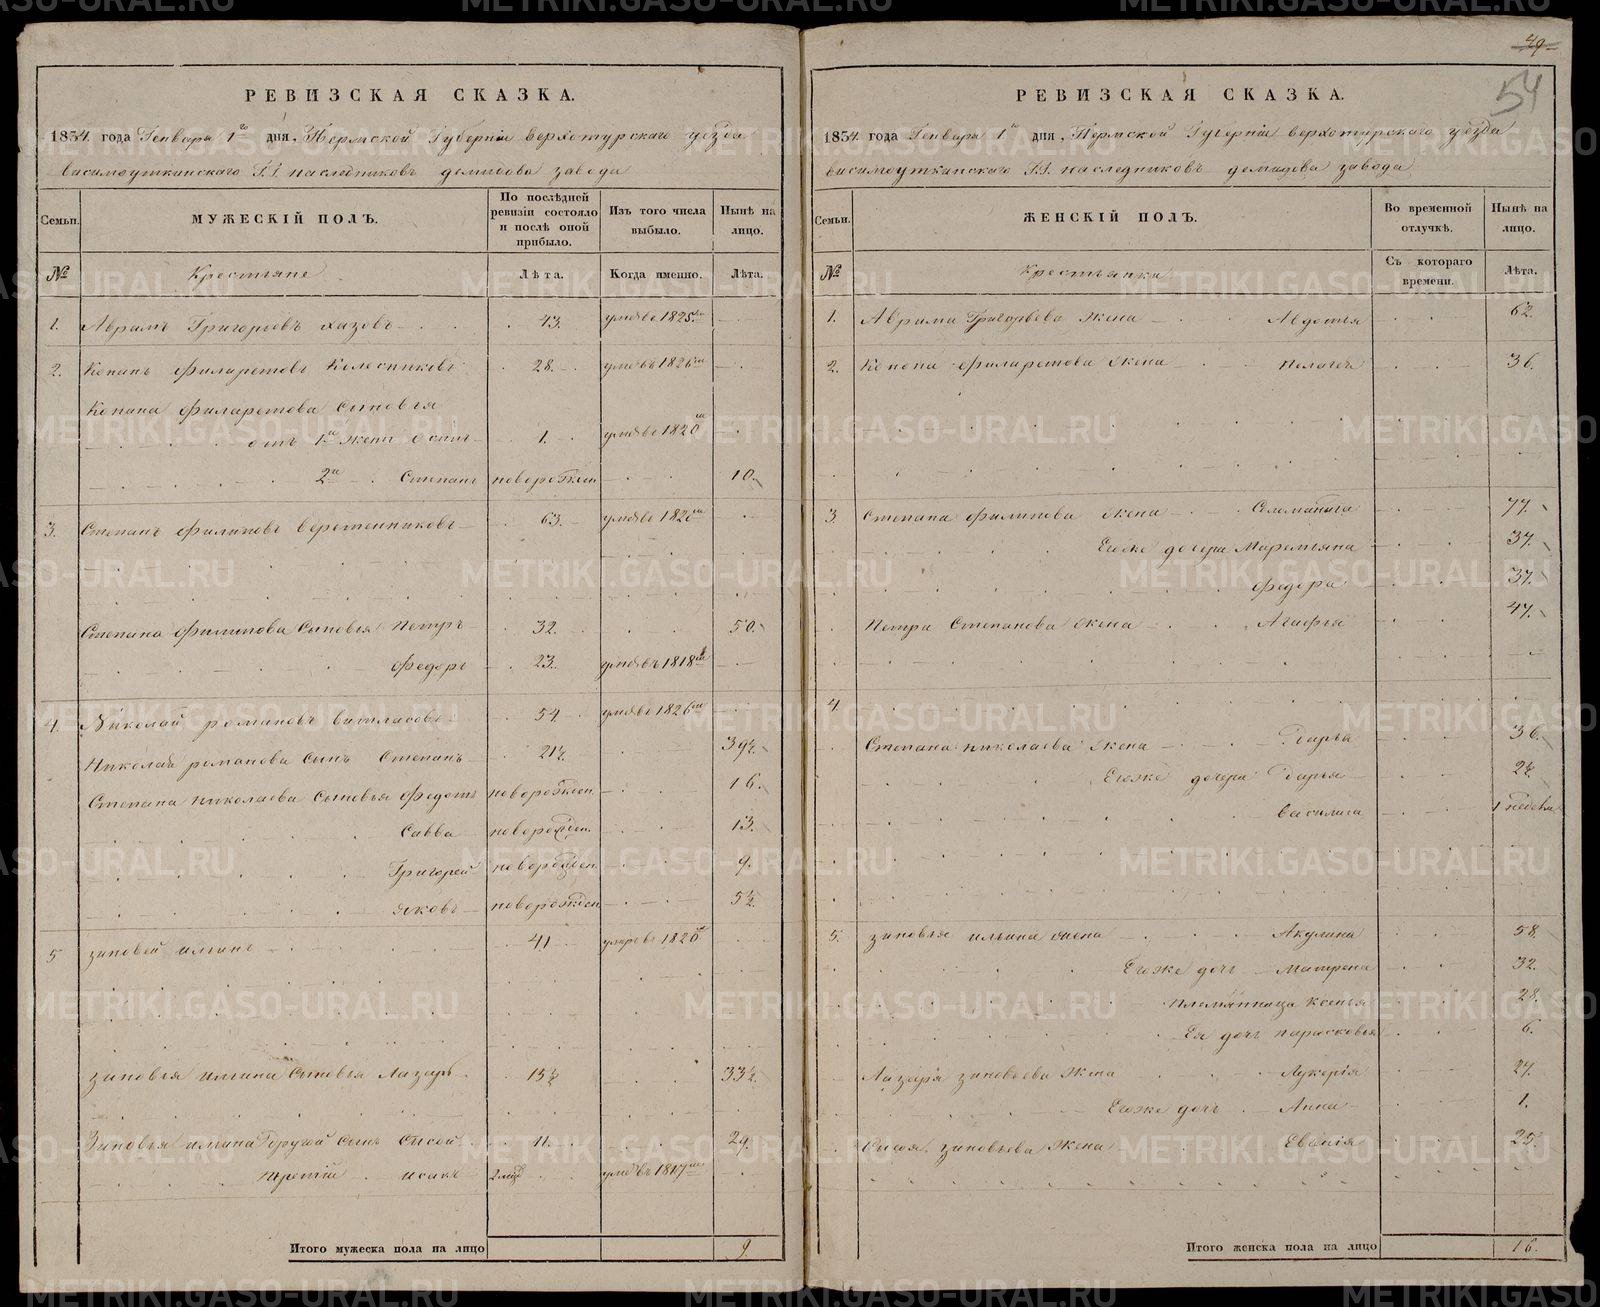 РЕВИЗСКАЯ СКАЗКА.
1834. года Генваря 1го дня, Пермской Губерніи верхотурскаго уезда
висимоуткинскаго Г.Г. наследниковъ демидова завода
Семьи.
МУЖЕСКІЙ ПОЛЪ.
По послѣдней ревизіи состояло и послѣ оной прибыло.
Изъ того числа выбыло.
Нынѣ на лицо.
№
Крестьяне
Лѣта.
Когда именно.
Лѣта.
1. Аврамъ Григорьевъ хазовъ 43. умре въ 1825м
2. Кононъ филаретовъ Колесниковъ 28. умре въ 1826м
Конона филаретова сыновья
отъ 1й жены Осипъ 1. умре въ 1820м
2й Степанъ новорожден 10.
3. Степанъ филиповъ веретенниковъ 63. умре въ 1820м
Степана филипова сыновья Петръ 32. 50.
федоръ 23. умре въ 1818м
4. Николай романовъ 54. умре въ 1826м
Николая романова сынъ Степанъ 21½ 39½
Степана николаева сыновья федотъ новорожден 16.
Савва новорожден. 13.
Григорей новорожден 9.
яковъ новорожден 5½
5 зиновей ильинъ 41 умре въ 1820м
зиновья ильина сыновья Лазарь 15½ 33½
Зиновья ильина другой сынъ Сысой 11. 29.
третій исакъ 2 умре въ 1817м
Итого мужеска пола на лицо 9.
49
54
РЕВИЗСКАЯ СКАЗКА.
1834. года Генваря 1го дня, Пермской Губерніи верхотурскаго уезда
висимоуткинскаго Г.Г. наследниковъ демидова завода
Семьи.
ЖЕНСКІЙ ПОЛЪ.
Во временной отлучкѣ.
Нынѣ на лицо.
№
Крестьянки
Съ котораго времени.
Лѣта.
1. Аврама Григорьева жена Авдотья 62.
2. Конона филаретова жена Пелагея 36.
3. Степана филипова жена 77.
Егоже дочери Маремьяна 37.
федора 37.
Петра Степанова жена Агафья 47.
4.
Степана николаева жена дарья 36.
Егоже дочери дарья 2½
василиса 1 недели
5. зиновья ильина жена Акулина 58.
Егоже дочь матрена 32.
племянница Ксенья 28.
Ея дочь парасковья 6.
Лазаря зиновьева жена Лукерія 27.
Егоже дочь Анна 1.
Сысоя зиновьева жена 25.
Итого женска пола на лицо 16.
METRIKI.GASO-URAL.RU